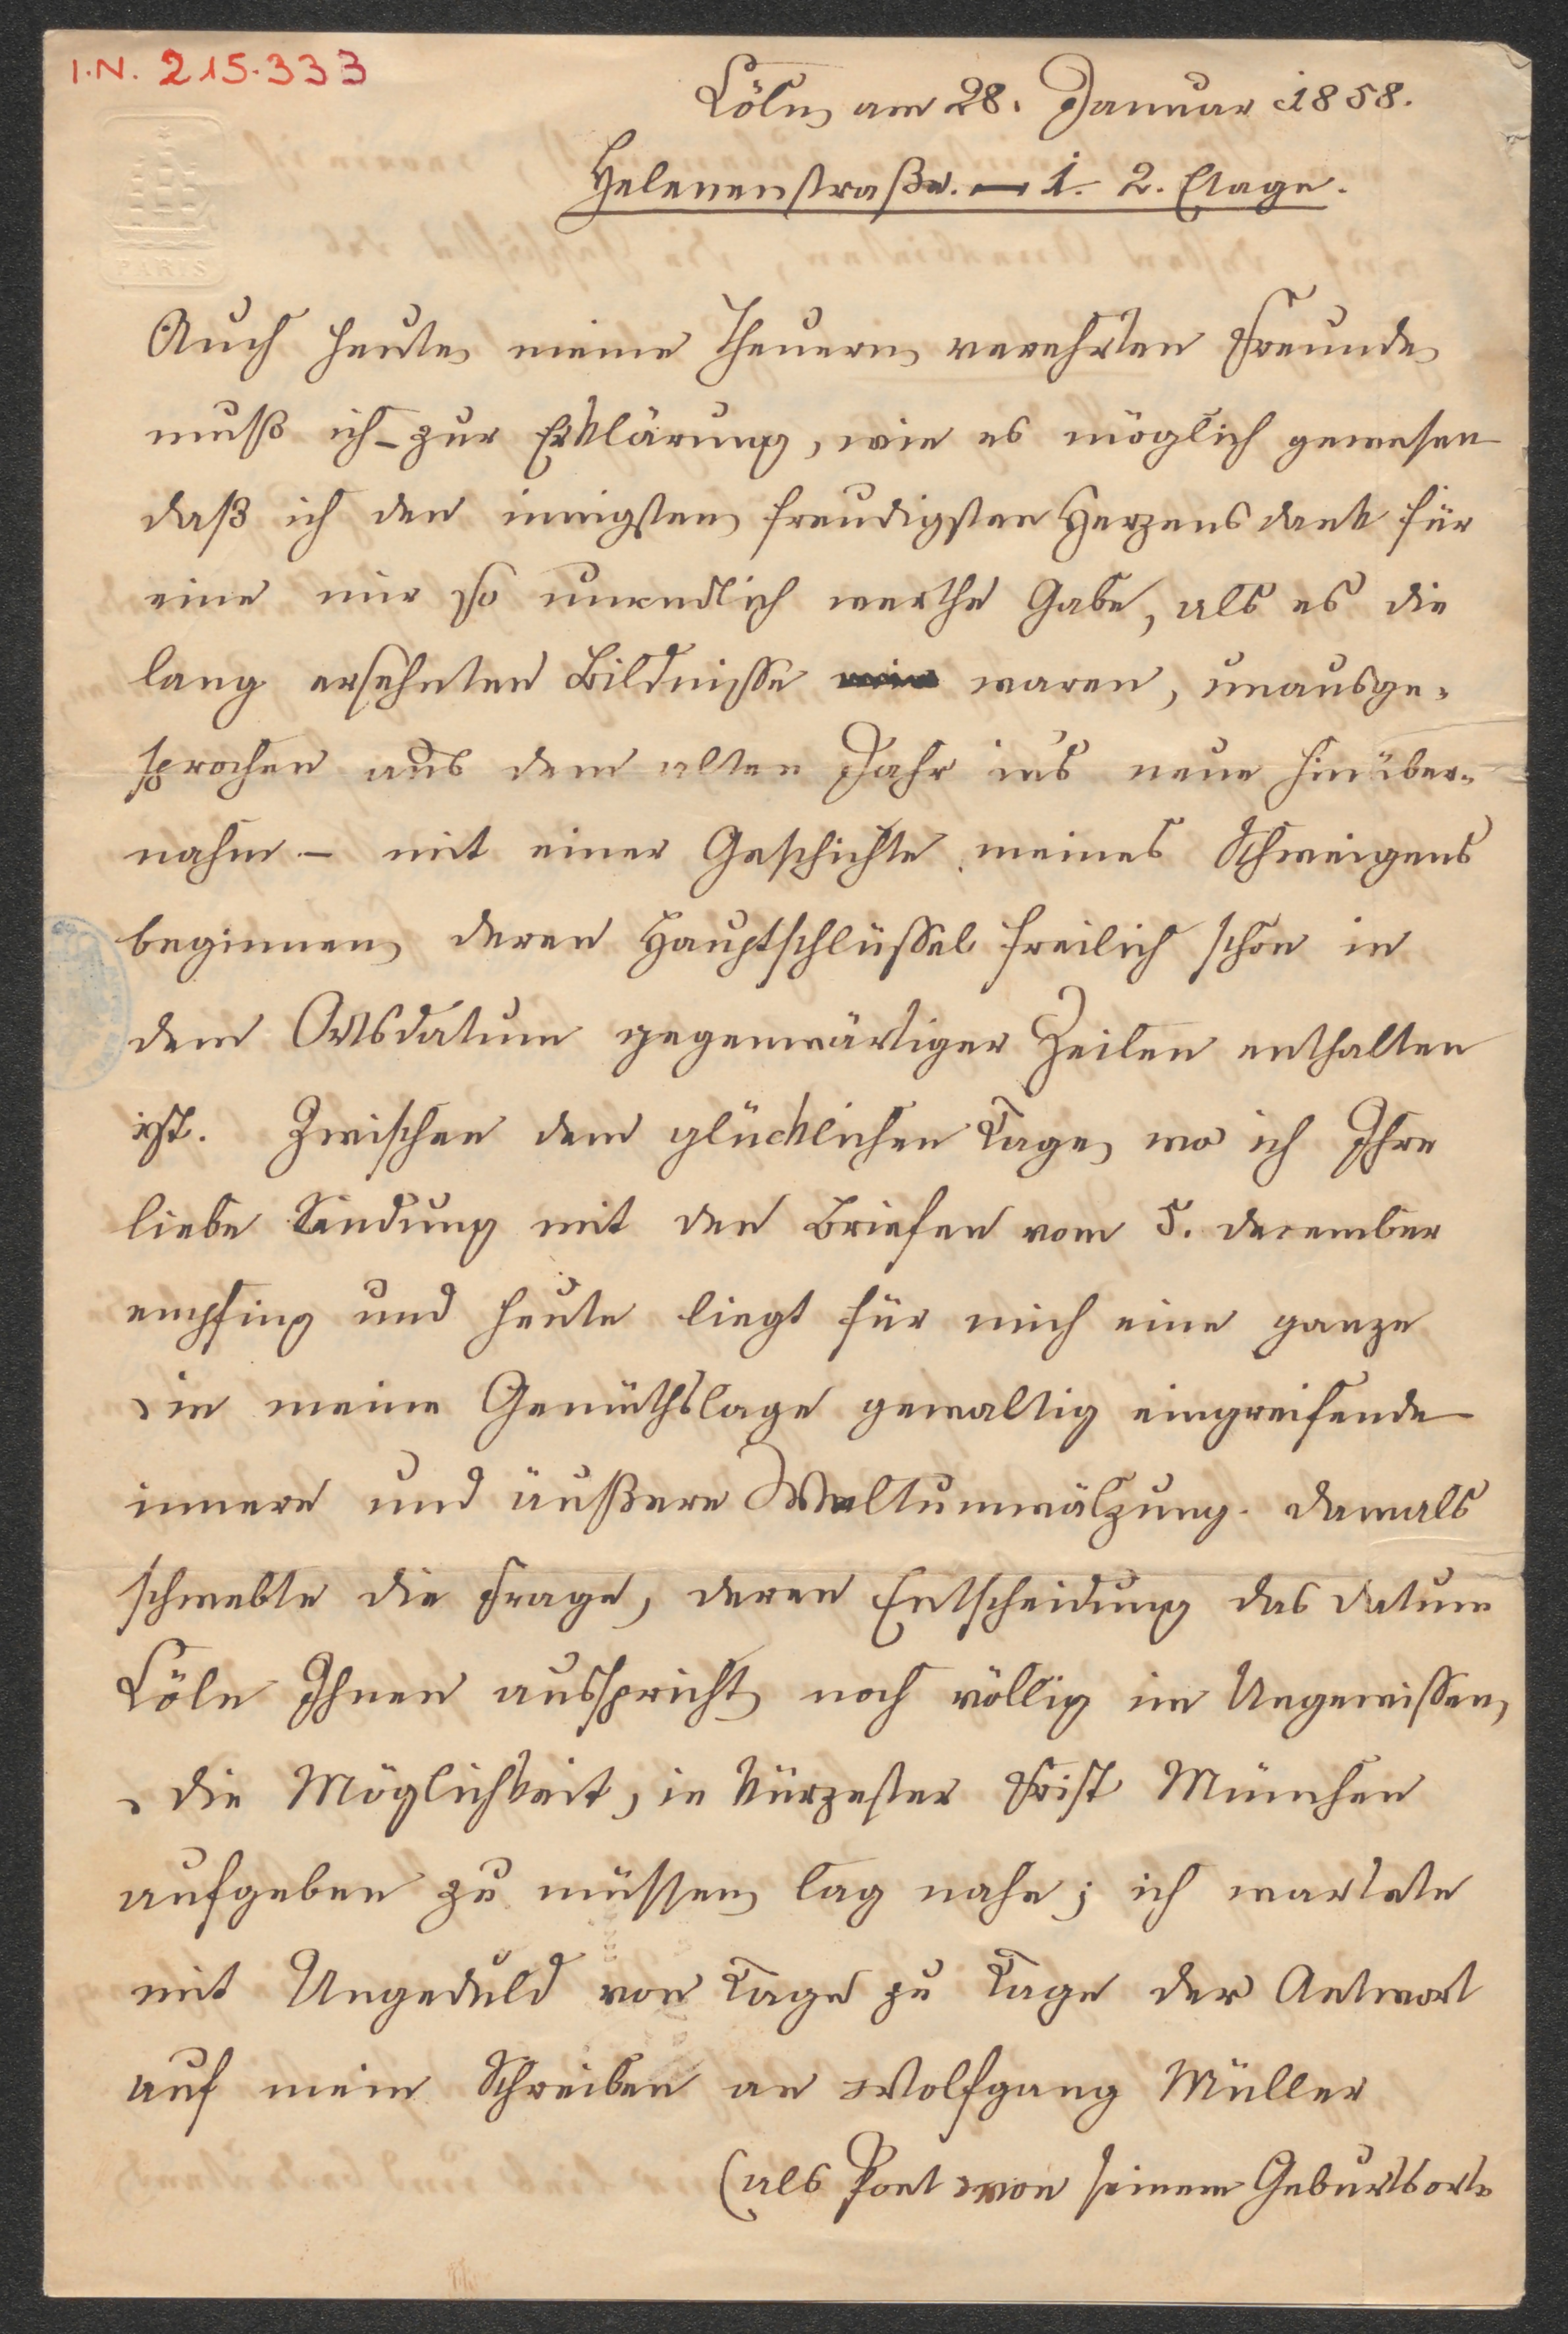 I.N. 215.333
PARIS
Cöln, am 28. Januar 1858.
Helenenstraße. — 1. 2. Etage.
Auch heute, meine theuern, verehrten Freunde,
muß ich – zur Erklärung, wie es möglich gewesen
daß ich den innigsten, freudigsten Herzensdank für
eine mir so unendlich werthe Gabe, als es die
lang ersehnten Bildnisse waren, unausge-
sprochen aus dem alten Jahr ins neue hinüber-
nahm – mit einer Geschichte meines Schweigens
beginnen, deren Hauptschlüssel freilich schon in
dem Ortsdatum gegenwärtiger Zeilen enthalten
ist. Zwischen dem glücklichen Tage, wo ich Ihre
liebe Sendung mit den Briefen vom 5. December
empfing und heute liegt für mich eine ganze
in meine Gemüthslage gewaltig eingreifende
innere und äußere Weltumwälzung. Damals
schwebte die Frage, deren Entscheidung das Datum
Cöln Ihnen ausspricht, noch völlig im Ungewissen,
die Möglichkeit, in kürzester Frist München
aufgeben zu müssen, lag nahe; ich wartete
mit Ungeduld von Tage zu Tage der Antwort
auf mein Schreiben an Wolfgang Müller
(als Poet von seinem Geburtsorte